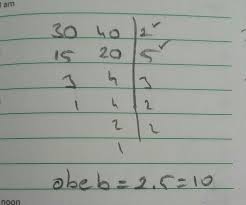 am
30 40 2✓
15 20 5✓
3 4 3
1 4 2
2 2
1
obeb = 2.5 = 10
noon